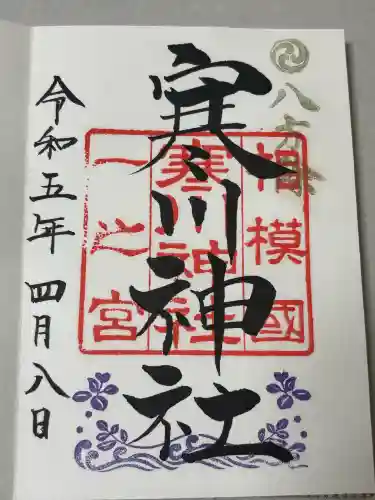 八方除
寒川神社
相模國
寒川神社
一之宮
令和五年四月八日